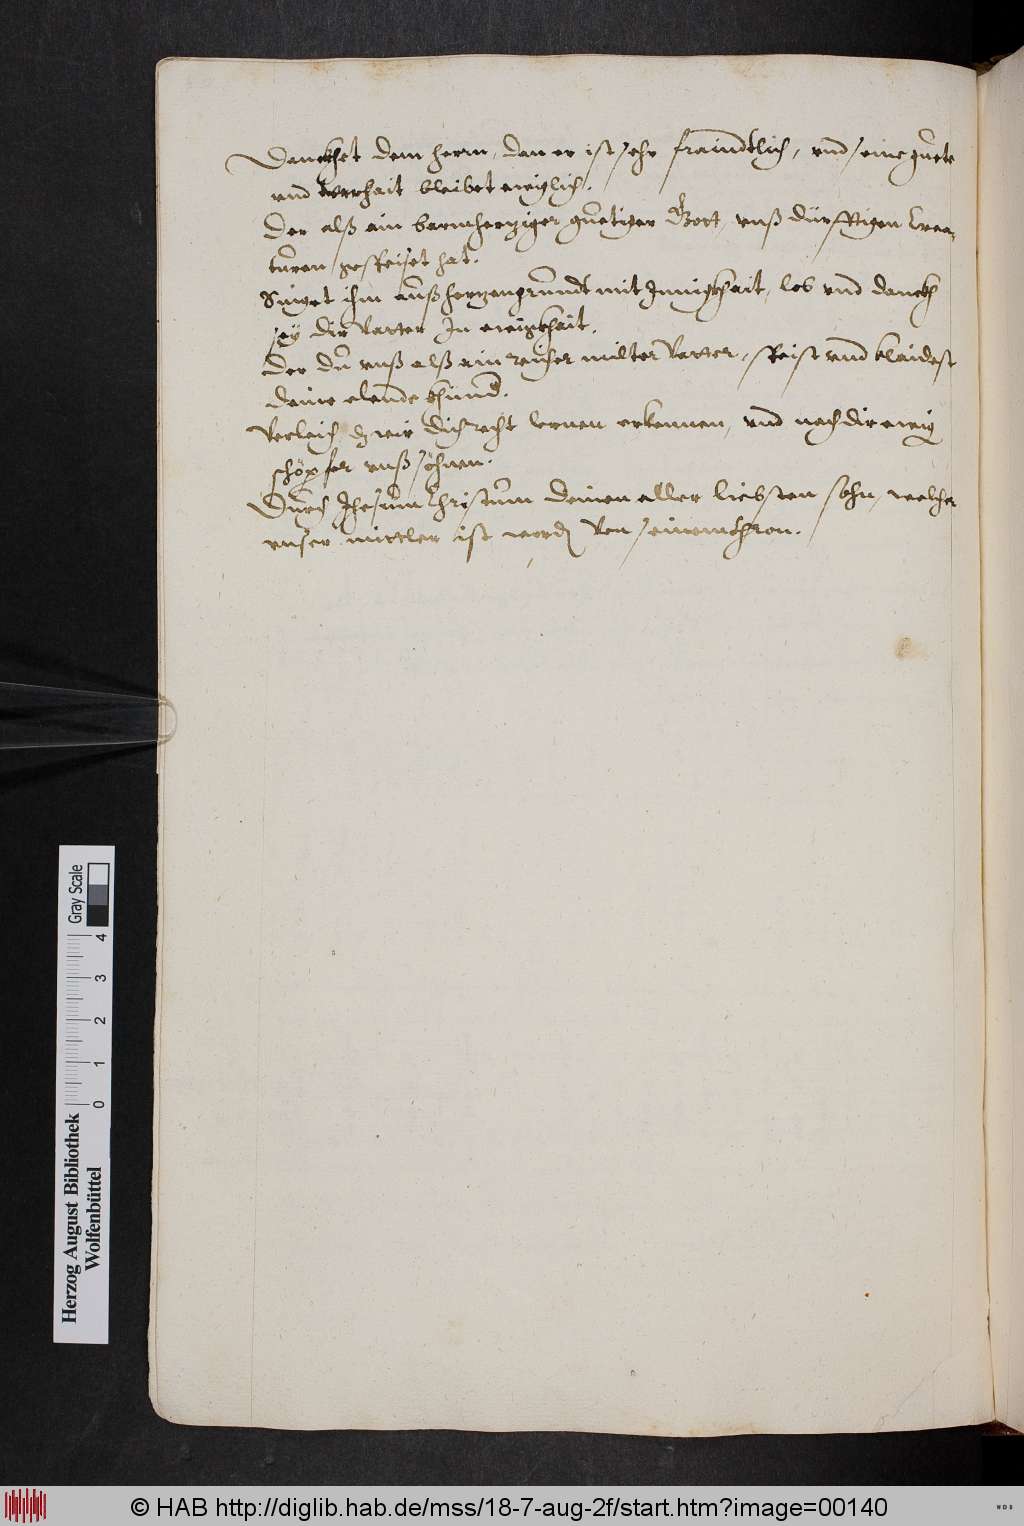 Danckhet dem herrn, dan er ist sehr fraindtlich, und seine güete
und warhait bleibet ewiglich.
Der alß ain barmhertziger güetiger Gott, unß dürfftigen Crea-
turen gespeiset hat.
Singet ihm auß hertzen grundt mit Innigkhait, lob und danckh
sey dir Vatter In ewigkhait.
Der du unß alß ain reicher milter Vatter, speist und klaidest
deine elende khind.
Verleich dz wir dich recht lernen erkennen, und nach dir ewig
schöpfer unß söhnen.
Durch Jhesum Christum deinen aller liebsten sohn, welcher
unser mittler ist word Von seinem thron.
Gray Scale
0 1 2 3 4
Herzog August Bibliothek
Wolfenbüttel
© HAB http://diglib.hab.de/mss/18-7-aug-2f/start.htm?image=00140